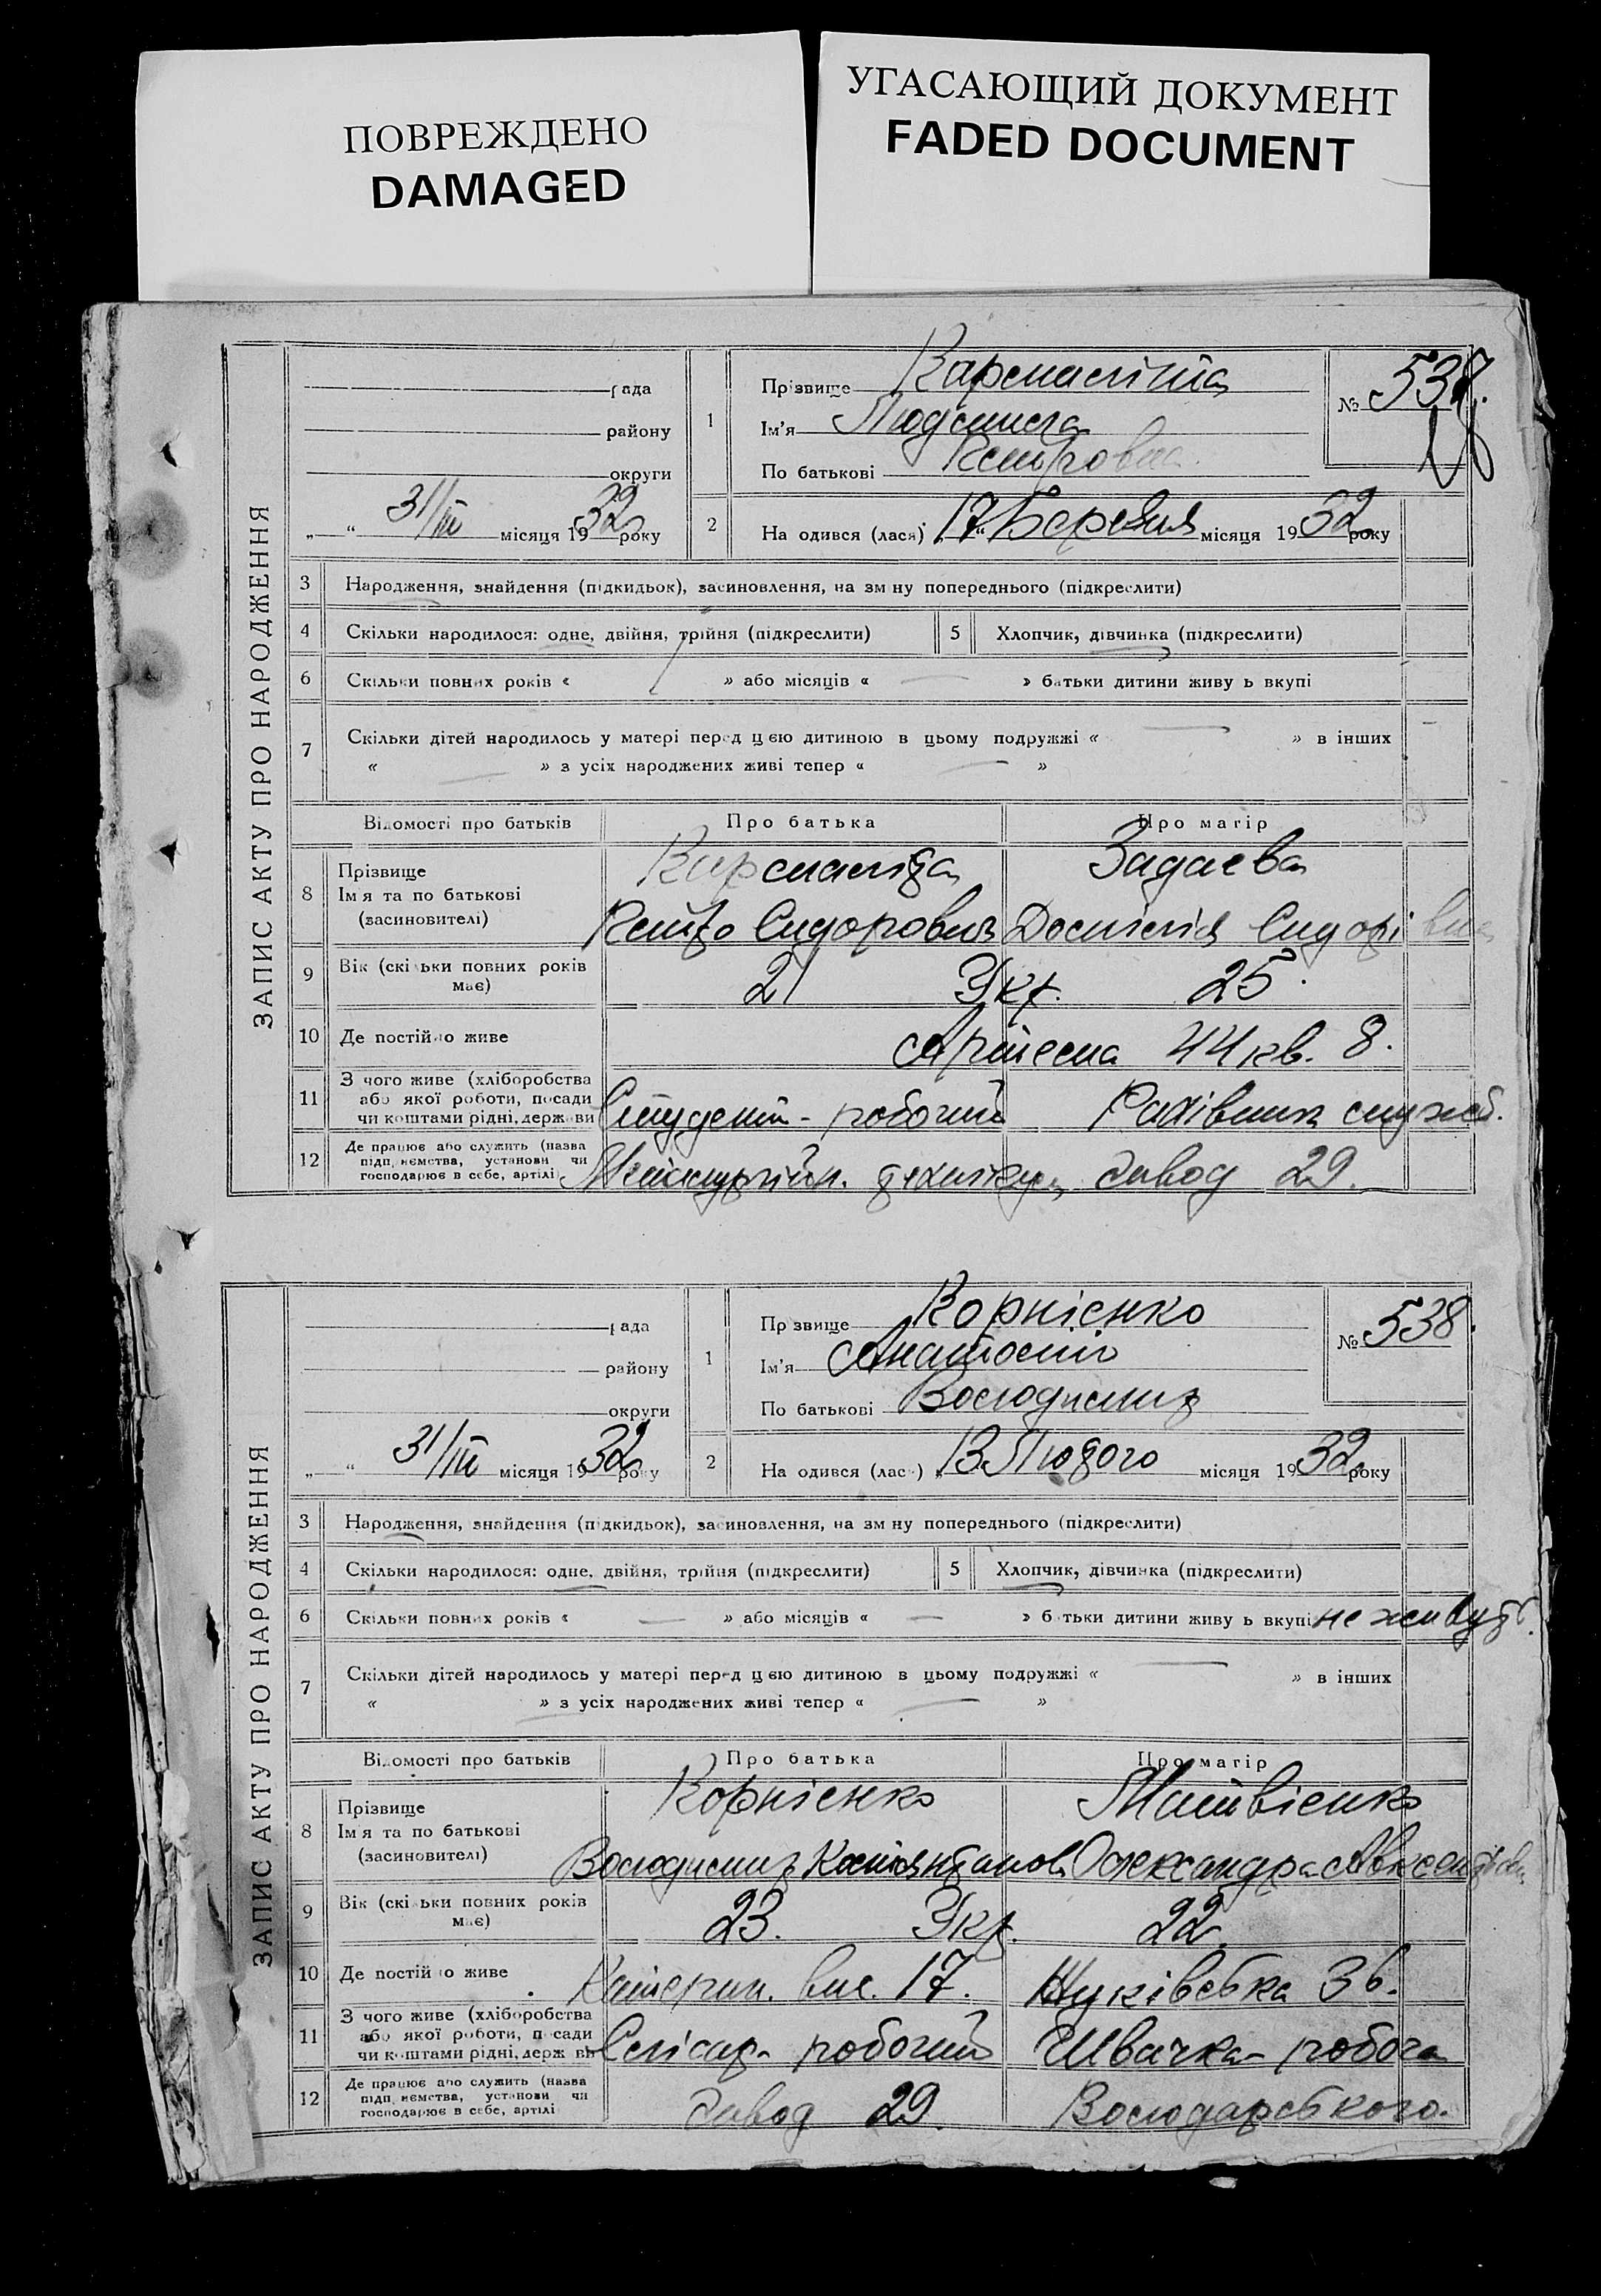 ПОВРЕЖДЕНО
DAMAGED
УГАСАЮЩИЙ ДОКУМЕНТ
FADED DOCUMENT
ЗАПИС АКТУ ПРО НАРОДЖЕННЯ
рада
району
округи
„ “ 31/III місяця 1932 року
1
Прізвище
Ім'я Людмила
По батькові Петровна
№ 537.
2 На одився (лася) „17“ Березня місяця 1932 року
3 Народження, знайдення (підкидьок), засиновлення, на зм ну попереднього (підкреслити)
4 Скільки народилося: одне, двійня, трійня (підкреслити) 5 Хлопчик, дівчинка (підкреслити)
6 Скільки повних років « » або місяців « — » батьки дитини живу ь вкупі
7 Скільки дітей народилось у матері перед цією дитиною в цьому подружжі « — » в інших
« — » з усіх народжених живі тепер « — »
Відомості про батьків Про батька Про матір
8 Прізвище
Ім я та по батькові
(засиновителі)
Задаева
Петро Сидорович Сидорівна
9 Вік (скільки повних років має) 21 Укр. 25.
10 Де постійно живе Артема 44 кв. 8.
11 З чого живе (хліборобства
або якої роботи, посади
чи коштами рідні, держави
Студент - робочий Рахівник служб.
12 Де працює або служить (назва
підприємства, установи чи
господарює в себе, артілі
Металургійн. Завод 29.
ЗАПИС АКТУ ПРО НАРОДЖЕННЯ
рада
району
округи
„ “ 31/III місяця 1932 року
1
Пр звище Корнієнко
Ім'я Анатолій
По батькові Володимир
№ 538.
2 На одився (лас ) „13 Лютого місяця 1932 року
3 Народження, знайдення (підкидьок), засиновлення, на зм ну попереднього (підкреслити)
4 Скільки народилося: одне, двійня, трійня (підкреслити) 5 Хлопчик, дівчинка (підкреслити)
6 Скільки повних років « — » або місяців « — » батьки дитини живу ь вкупі не живуть.
7 Скільки дітей народилось у матері перед цією дитиною в цьому подружжі « — » в інших
« — » з усіх народжених живі тепер « — »
Відомості про батьків Про батька Про матір
8 Прізвище
Ім я та по батькові
(засиновителі)
Корнієнко Матвієнко
Володимир Костянтинов Олександра Авксентієвн
9 Вік (скільки повних років має) 23. Укр. 22.
10 Де постійно живе Катерин. вис. 17. Жуківська 36.
11 З чого живе (хліборобства
або якої роботи, посади
чи коштами рідні, держ ви
Слісар- робочий Швачка- робоча
12 Де працює або служить (назва
підприємства, установи чи
господарює в себе, артілі
Завод 29. Володарського.